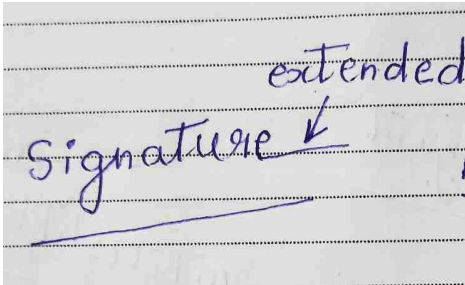 extended
Signature